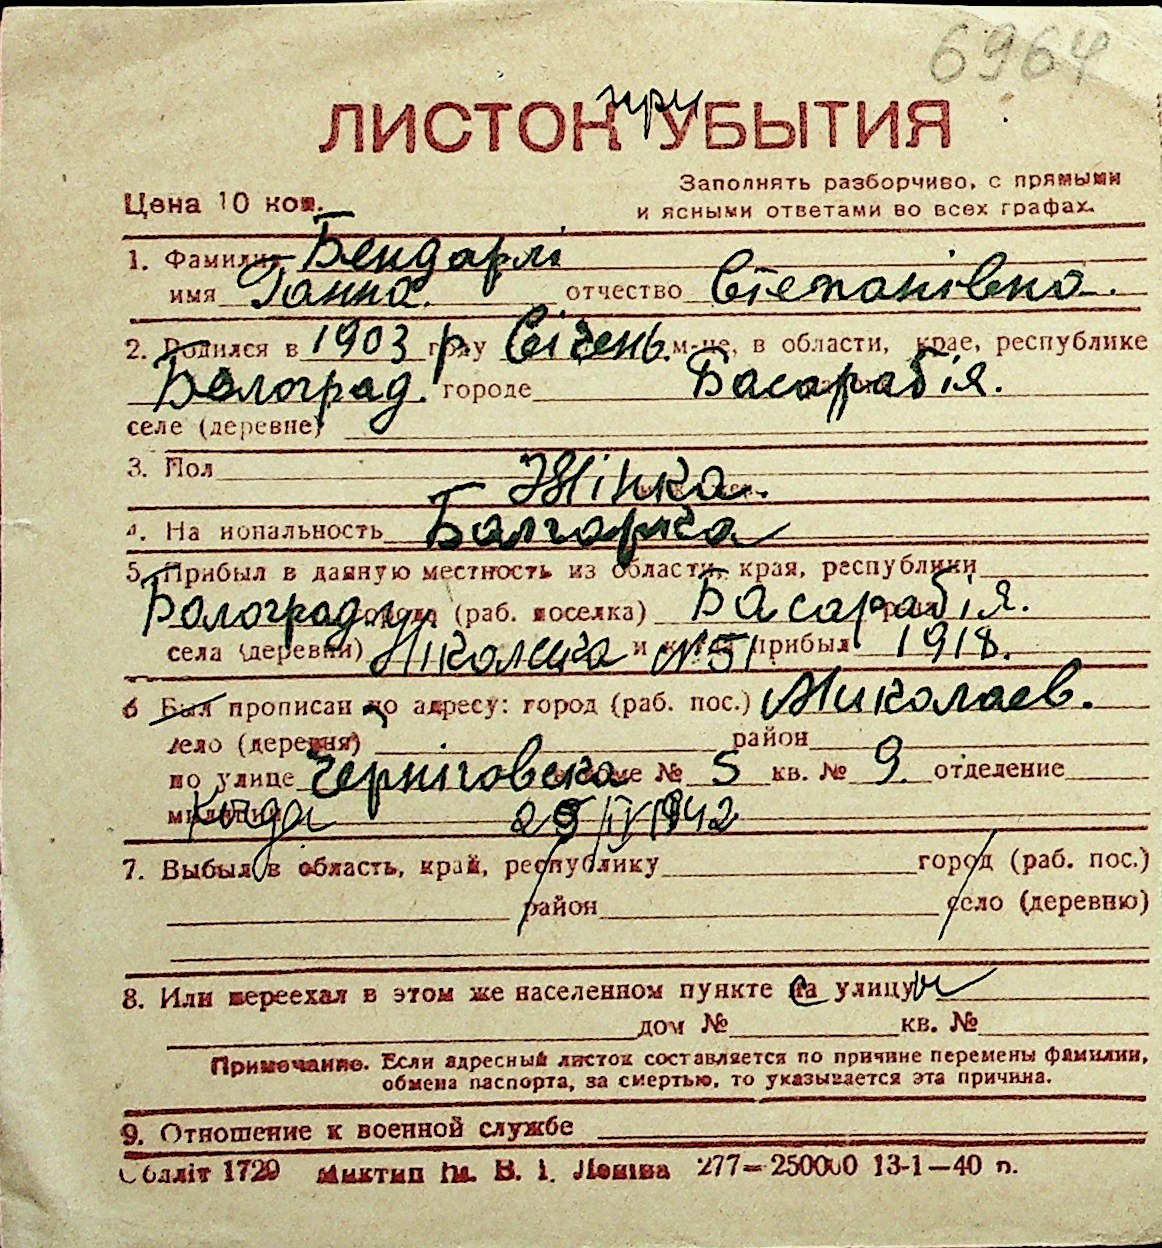 6964
ЛИСТОК при УБЫТИЯ
Цена 10 коп.
Заполнять разборчиво, с прямыми
и ясными ответами во всех графах.
1. Фамилия Бендарлі
имя Ганна. отчество Степанівна.
2. Родился в 1903 р. году Січень. м-це, в области, крае, республике
Болоград. городе Басарабія.
селе (деревне)
3. Пол Жінка.
4. На иональность Балгарка
5. Прибыл в данную местность из области, края, республики
Болоград города (раб. поселка) Басарабія.
села (деревни) и когда прибыл 1918.
6 Был прописан по адресу: город (раб. пос.) Миколаев.
село (деревня) район
по улице Черніговска доме № 5 кв. № 9. отделение
милиции Когда 29/IV 1942
7. Выбыл в область, край, республику город (раб. пос.)
район село (деревню)
8. Или переехал в этом же населенном пункте на улицу
дом № кв. №
Примечание. Если адресный листок составляется по причине перемены фамилии,
обмена паспорта, за смертью, то указывается эта причина.
9. Отношение к военной службе
Облліт 1729 Миктип ім. В. І. Леніна 277—250000 13-1—40 п.